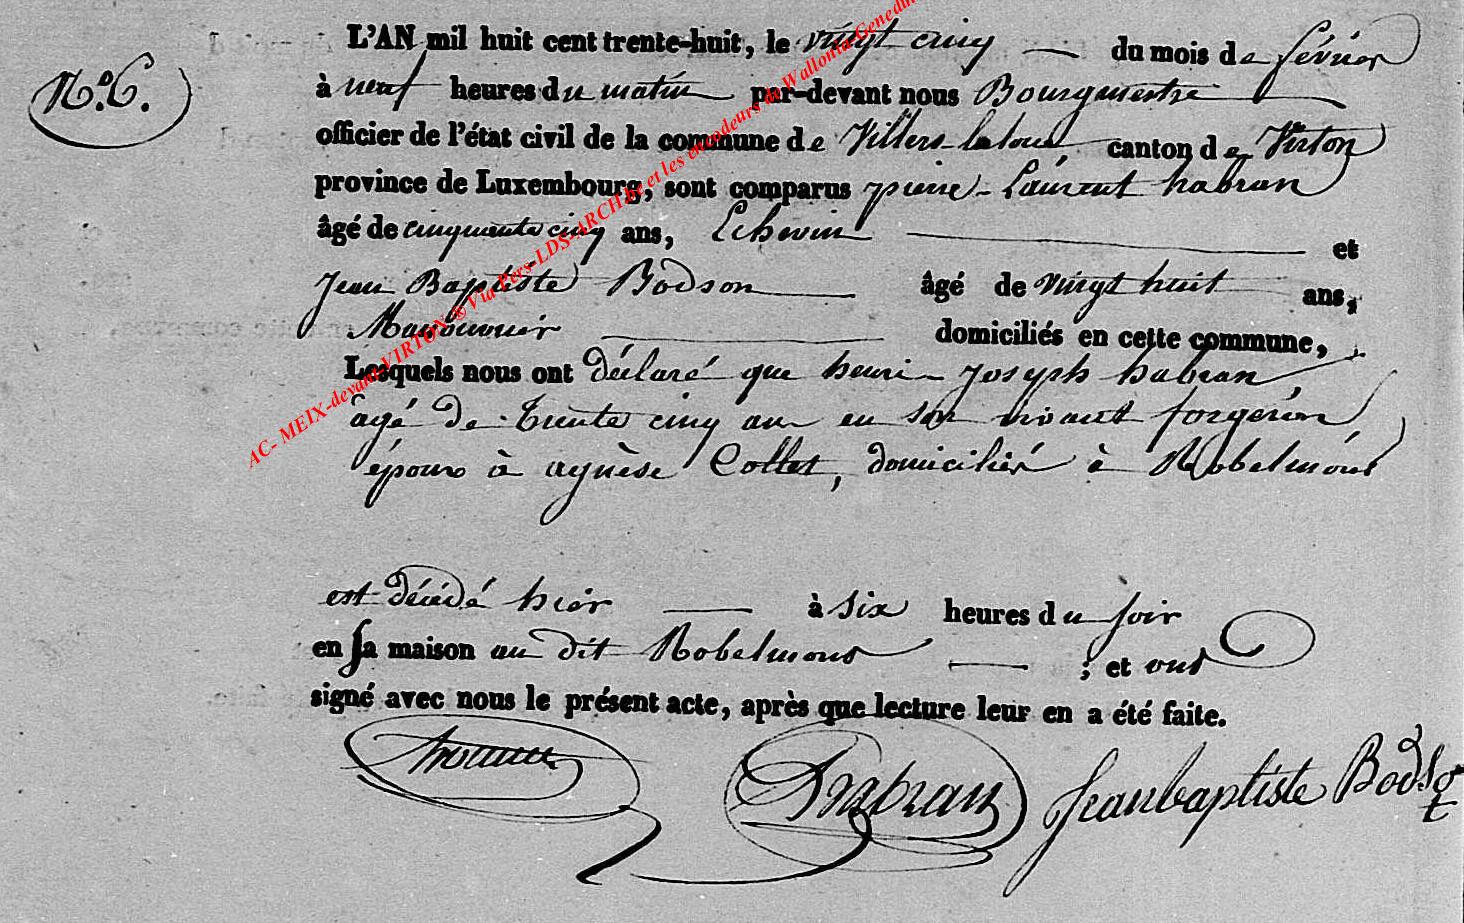 L'AN mil huit cent trente-huit, le vingt cinq du mois de février
N.° 6.
à neuf heures du matin par-devant nous Bourgmestre
officier de l'état civil de la commune de Villers-laloue canton de Virton
province de Luxembourg, sont comparus pierre-Laurent habran
âgé de cinquante cinq ans, Echevin et
Jean Baptiste Bodson âgé de vingt huit ans,
domiciliés en cette commune,
Lesquels nous ont déclaré que henri-Joseph habran,
agé de trente cinq ans en son vivant forgeron
époux à agnèse Collet, domicilié à Robelmont
est décédé hier à six heures du soir
en sa maison au dit Robelmont ; et ont
signé avec nous le présent acte, après que lecture leur en a été faite.
habran Jeanbaptiste Bodson
AC- MEIX-devant-VIRTON ®Via Pers-LDS-ARCH.be et les encodeurs de Wallonia-Genedum